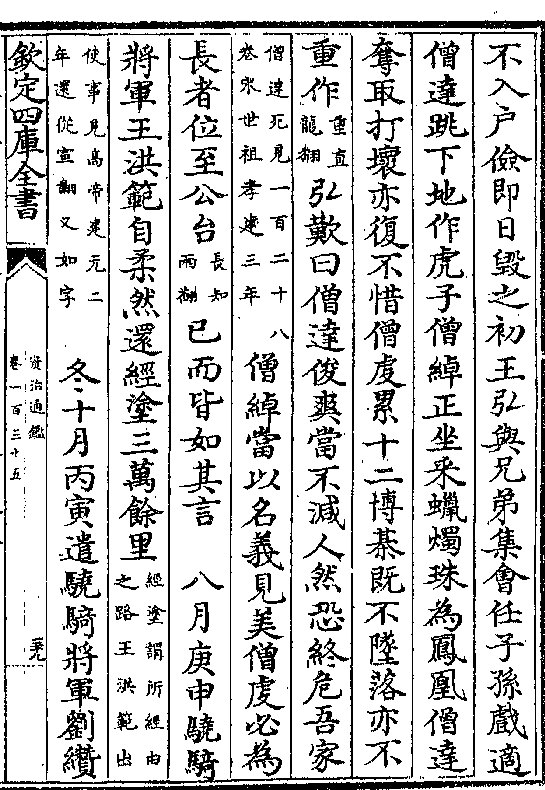 不入戶儉即日毀之初王弘與兄弟集會任子孫戲適
僧達跳下地作虎子僧綽正坐采蠟燭珠為鳳凰僧達
奪取打壞亦復不惜僧虔累十二博棊既不墜落亦不
重作重直龍翻弘歎曰僧達俊爽當不減人然恐終危吾家
僧達死見一百二十八卷宋世祖孝建三年僧綽當以名義見美僧虔必為
長者位至公台長知兩翻已而皆如其言 八月庚申驍騎
將軍王洪範自柔然還經塗三萬餘里經塗謂所經由之路王洪範出
使事見高帝建元二年還從宣翻又如字冬十月丙寅遣驍騎將軍劉纘
欽定四庫全書
資治通鑑
卷一百三十五